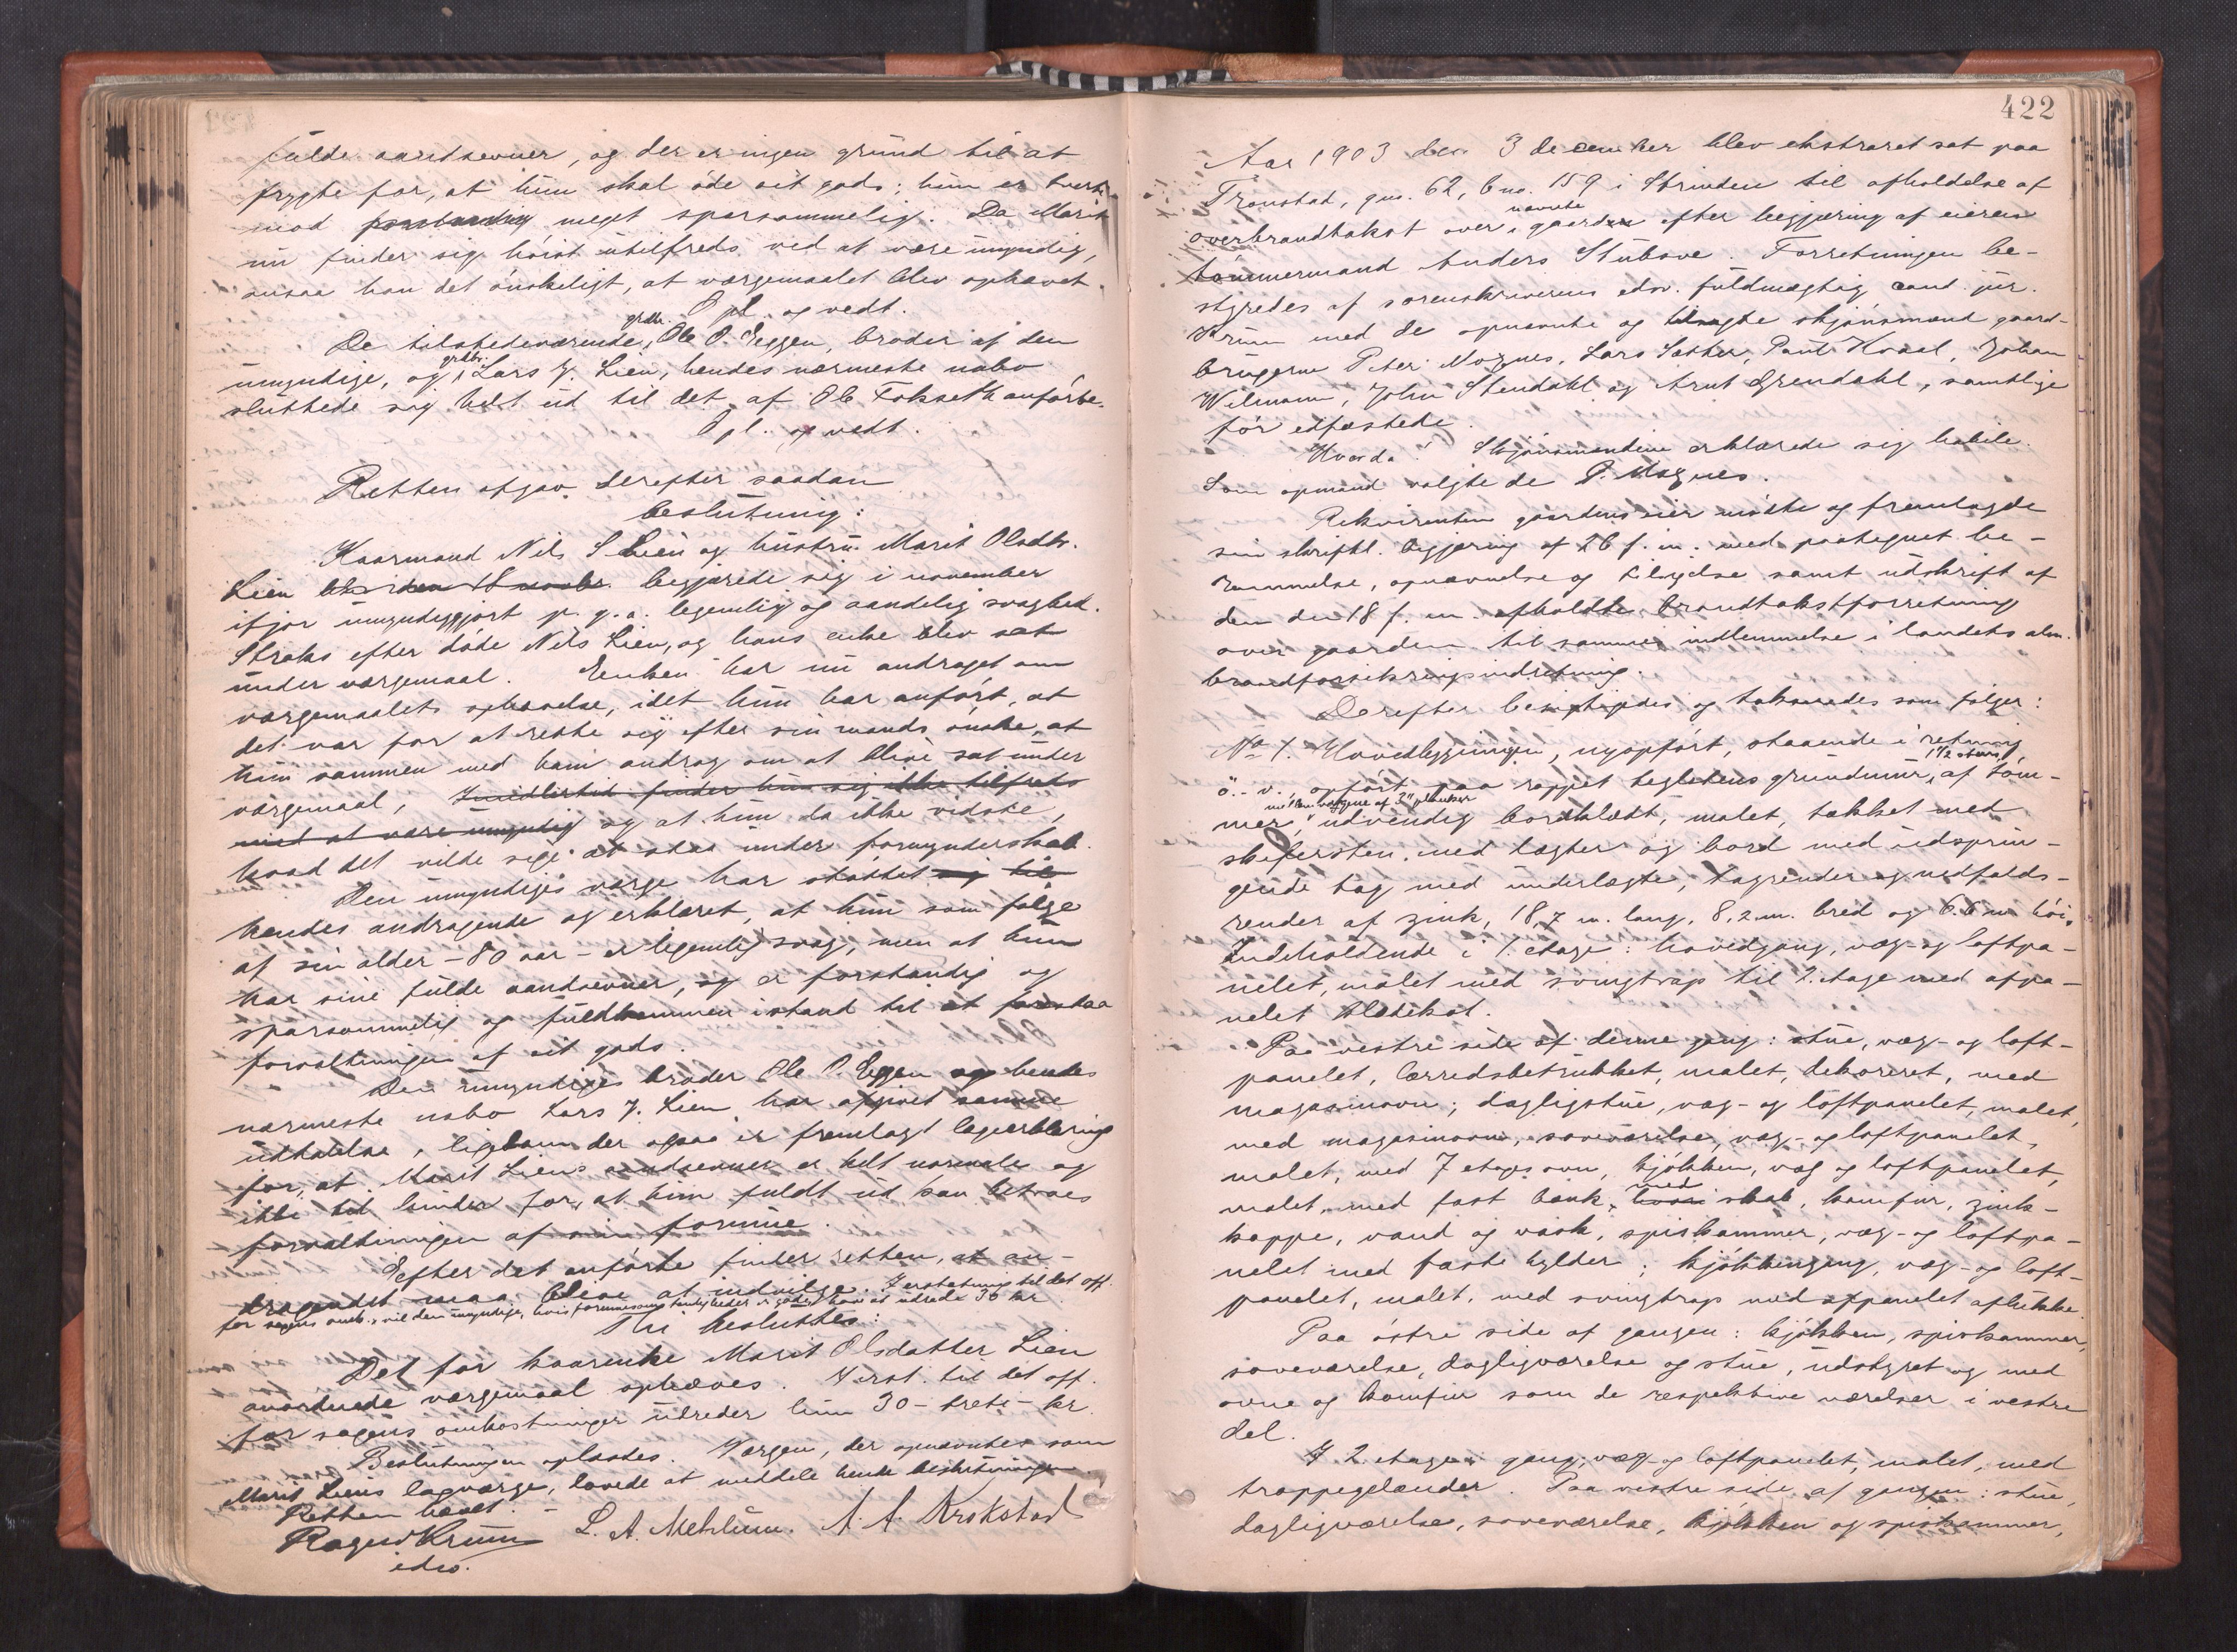 fulde aandsevner, og der er ingen grund til at
frygte for, at hun skal öde sit gods; hun er tvert-
imod forstandig meget sparsommelig. Da Marit
nu finder sig höist utilfreds ved at være umyndig,
ansaa han det önskeligt, at værgemaalet blev ophævet.
Opl. og vedt.
De tilstedeværende, grdbr. Ole O. Eggen, broder af den
umyndige, og grdbr. Lars J. Lien, hendes nærmeste nabo
sluttede sig helt ud til det af Ole Fokseth anförte.
Opl. og vedt.
Retten afgav derefter saadan
beslutning:
Kaarmand Nils S Lien og hustru Marit Olsdtr.
Lien blev den 18 novbr. begjærede sig i november
ifjor umyndiggjort p. g. a. legemlig og aandelig svaghed.
Straks efter döde Nils Lien, og hans enke blev sat
under værgemaal. Enken har nu andraget om
værgemaalets ophævelse, idet hun har anfört, at
det var for at rette sig efter sin mands önske, at
hun sammen med ham androg om at blive sat under
værgemaal, Imidlertid finder hun sig ikke tilfreds
med at være umyndig og at hun da ikke vidste,
hvad det vilde sige at staa under formynderskab.
Den umyndiges værge har stöttet sig til
hendes andragende og erklæret, at hun som fölge
af sin alder - 80 aar - er legemlig svag, men at hun
har sine fulde aandsevner, og er forstandig og
sparsommelig og fuldkommen istand til at forestaa
forvaltningen af sit gods.
Den umyndiges broder Ole O. Eggen og hendes
nærmeste nabo Lars J. Lien har afgivet samme
udtalelse, ligesom der ogsaa er fremlagt lægeerklæring
for, at Marit Liens aandsevner er helt normale og
ikke til hinder for, at hun fuldt ud kan betroes
forvaltningen af sin formue.
Efter det anförte finder retten, at an-
dragendet maa blive at indvilge. I erstatning til det off.
for sagens omk. vil den umyndige, hvis formuesomstændigheder er gode, have at udrede 30 kr.
Thi besluttes:
Det for kaarenke Marit Olsdatter Lien
anordnede værgemaal ophæves. I erst. til det off.
for sagens omkostninger udreder hun 30 - treti - kr.
Beslutningen oplæstes. Værgen, der opnævntes som
Marit Liens lagværge, lovede at meddele hende beslutningen.
Retten hævet.
Ragnv Krum L. A. Mehlum. A. A. Krokstad
edsv.
422
Aar 1903 den 3 december blev ekstraret sat paa
Tronstad, gno. 62, bno. 159 i Strinden til afholdelse af
overbrandtakst over nævnte gaarden efter begjæring af eieren
tömmermand Anders Stubsve. Forretningen be-
styredes af sorenskriverens edsv. fuldmægtig cand. jur.
Krum med de opnævnte og tilsagte skjönsmænd gaard-
brugerne Peter Moznes, Lars Sæther, Paul Kvaal, Johan
Wilmann, John Stendahl og Arnt Grendahl, samtlige
för edfæstede.
Hvorda: Skjönsmændene erklærede sig habile.
Som opmand valgte de P. Moznes.
Rekvirenten gaardens eier mötte og fremlagde
sin skriftl. begjæring af 26 f. m. med paategnet be-
rammelse, opnævnelse og tilsigelse samt udskrift af
den den 18 f. m. afholdte brandtakstforretning
over gaarden til sammes indlemmelse i landets alm.
brandforsikringsindretning.
Derefter besigtigedes og takseredes som fölger:
No 1. Hovedbygningen, nyopfört, staaende i retning
ö.-v., opfört paa rappet teglstens grundmur, 1 1/2 stens, af töm-
mer, mellemvæggene af 3" planker udvendig bordklædt, malet, tækket med
skifersten med lægter og bord med udsprin-
gende tag med underlægte, tagrender og nedfalds-
render af zink, 18,7 m. lang, 8,2 m. bred og 6.6 m höi.
Indeholdende i 1. etage: hovedgang, væg- og loftpa-
nelet, malet med svingtrap til 2. etage med afpa-
nelet kladekot.
Paa vestre side af denne gang: stue, væg- og loft-
panelet, lærredsbetrukket, malet, dekoreret, med
magasinovn; dagligstue, væg- og loftpanelet, malet,
med magasinovn, soveværelse, væg- og loftpanelet,
malet, med 7 etages ovn, kjökken, væg og loftpanelet,
malet, med fast bænk, med skab, komfur, zink-
kappe, vand og vask, spiskammer, væg- og loftpa-
nelet med faste hylder; kjökkengang, væg- og loft-
panelet, malet, med svingtrap med afpanelet aflukke.
Paa östre side af gangen: kjökken, spiskammer,
soveværelse, dagligværelse og stue, udstyret og med
ovne og komfur som de respektive værelser i vestre
del.
I 2. etage: gang, væg- og loftpanelet, malet, med
trappegelænder. Paa vestre side af gangen: stue,
dagligværelse, soveværelse, kjökken og spiskammer,